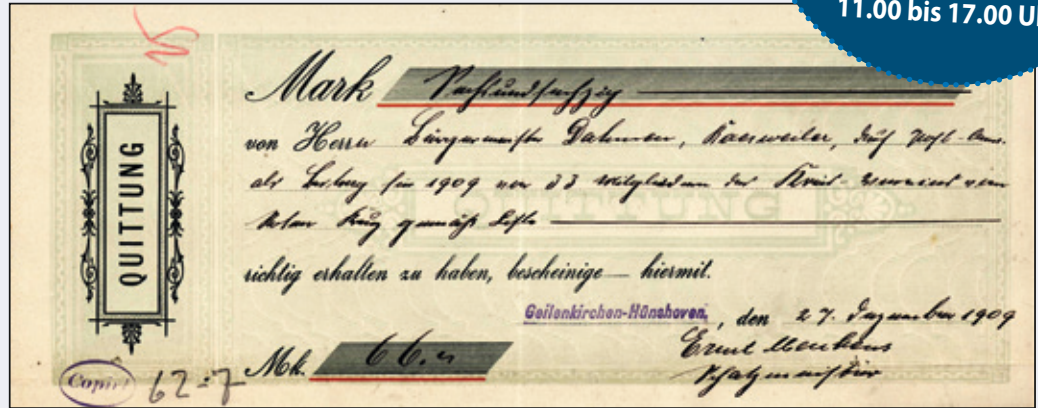 11.00 bis 17.00 U
QUITTUNG
Mark Sechsundsechzig
von Herrn Bürgermeister Dahmen, Baesweiler, durch Post-Anw.
als Beitrag für 1909 von 33 Mitgliedern des Kreis-Vereins vom
Roten Kreuz gemäß Liste
QUITTUNG
richtig erhalten zu haben, bescheinige hiermit.
Geilenkirchen-Hünshoven, den 27. Dezember 1909
Mk. 66.
Schatzmeister
Copirt 62